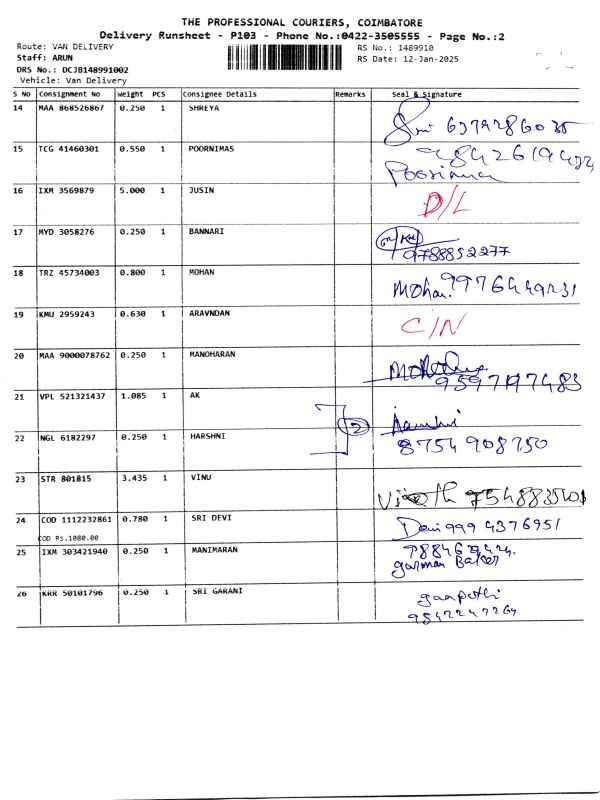 THE PROFESSIONAL COURIERS, COIMBATORE
Delivery Runsheet - P103 - Phone No.:0422-3505555 - Page No.:2
Route: VAN DELIVERY RS No.: 1489910
Staff: ARUN RS Date: 12-Jan-2025
DRS No.: DCJB148991002
Vehicle: Van Delivery
S No Consignment No Weight PCS Consignee Details Remarks Seal & Signature
14 MAA 868526867 0.250 1 SHREYA
15 TCG 41460301 0.550 1 POORNIMAS
Poornima
16 IXM 3569879 5.000 1 JUSIN D/L
17 MYD 3058276 0.250 1 BANNARI
9788852277
18 TRZ 45734003 0.800 1 MOHAN Mohan. 9976449231
19 KMU 2959243 0.630 1 ARAVNDAN C/N
20 MAA 9000078762 0.250 1 MANOHARAN
9597197483
21 VPL 521321437 1.085 1 AK
2
22 NGL 6182297 0.250 1 HARSHNI 8754908750
23 STR 801815 3.435 1 VINU Vinoth 7548835401
24 COD 1112232861 0.780 1 SRI DEVI Devi 9994376951
COD Rs.1080.00
25 IXM 303421940 0.250 1 MANIMARAN
26 KRR 50101796 0.250 1 SRI GARANI